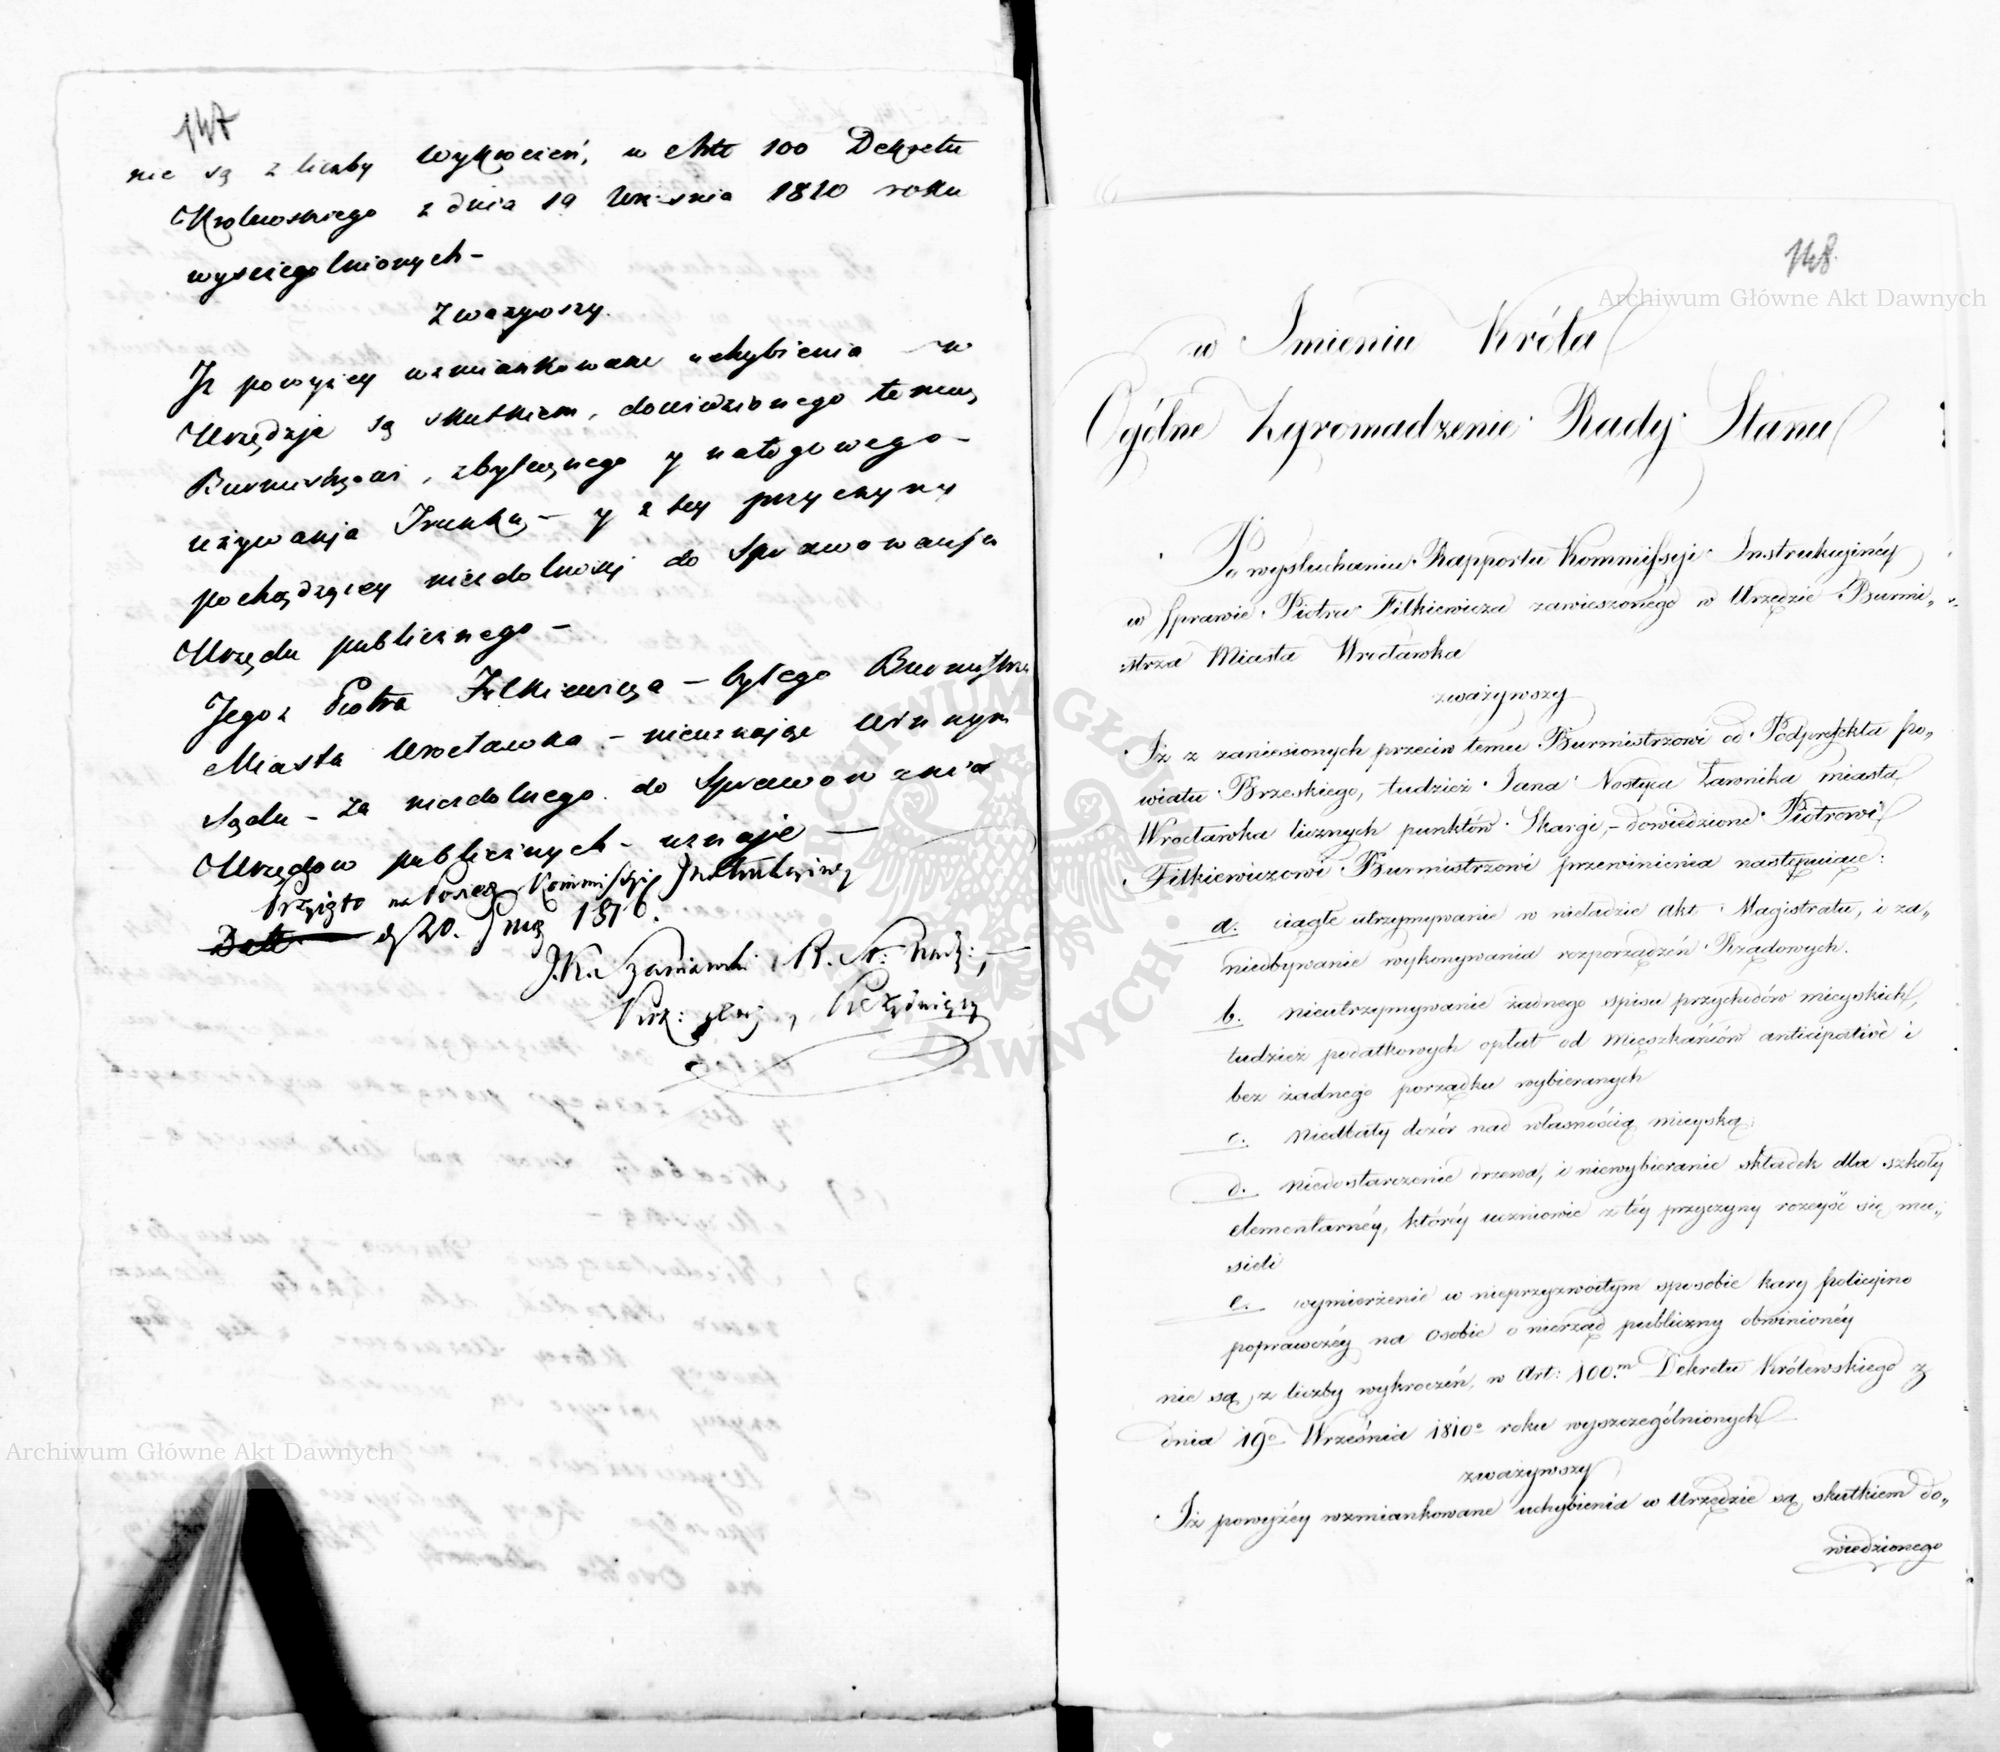 147
nie są z liczby wykroczeń, w Art. 100 Dekretu
Królewskiego z dnia 19 Września 1810 roku
wyszczegolnionych –
Zważywszy.
Iż powyżey wzmiankowane uchybienia w
Urzędzie są skutkiem, dowiedzionego temuż
Burmistrzowi, zbytecznego y nałogowego
używania Trunku – y z tey przyczyny
pochodzącey niezdolności do sprawowania
Urzędu publicznego –
Tegoż Piotra Filkiewicza – byłego Burmistrza
Miasta Wrocławka – nieuznając winnym
Sądu – za niezdolnego do sprawowania
Urzędow publicznych – uznaje –
Przyięto na Kommissyi Instrukcyiney
d. 20. 1816.
J. K. Szaniawski, R. St.
148.
w Imieniu Króla
Ogólne Zgromadzenie Rady Stanu
Po wysłuchaniu Rapportu Kommissyi Instrukcyinéy
w sprawie Piotra Filkiewicza zawieszonego w Urzędzie Burmi„
strza Miasta Wrocławka
zważywszy
Iż z zaniesionych przeciw temu Burmistrzowi od Podprefekta po„
wiatu Brzeskiego, tudzież Jana Nostyca Ławnika miasta
Wrocławka licznych punktów Skargi, – dowiedzione Piotrowi
Filkiewiczowi Burmistrzowi przewinienia następuiące:
a. ciągłe utrzymywanie w nieładzie akt Magistratu, i za„
niedbywanie wykonywania rozporządzeń Rządowych.
b. nieutrzymywanie żadnego spisu przychodów mieyskich,
tudzież podatkowych opłat od Mieszkańców anticipative i
bez żadnego porządku wybieranych
c. Niedbały dozór nad własnością mieyską;
d. niedostarczenie drzewa, i niewybieranie składek dla szkoły
elementarnéy, któréy uczniowie z téy przyczyny rozeyść się mu„
sieli
e. wymierzenie w nieprzyzwoitym sposobie kary policyino
poprawczéy na osobie o nierząd publiczny obwinionéy
nie są z liczby wykroczeń, w Art: 100.m Dekretu Królewskiego z
dnia 19o Września 1810o roku wyszczególnionych
zważywszy
Iż powyżéy wzmiankowane uchybienia w Urzędzie są skutkiem do„
wiedzionego
Archiwum Główne Akt Dawnych
Archiwum Główne Akt Dawnych
ARCHIWUM GŁÓWNE AKT DAWNYCH